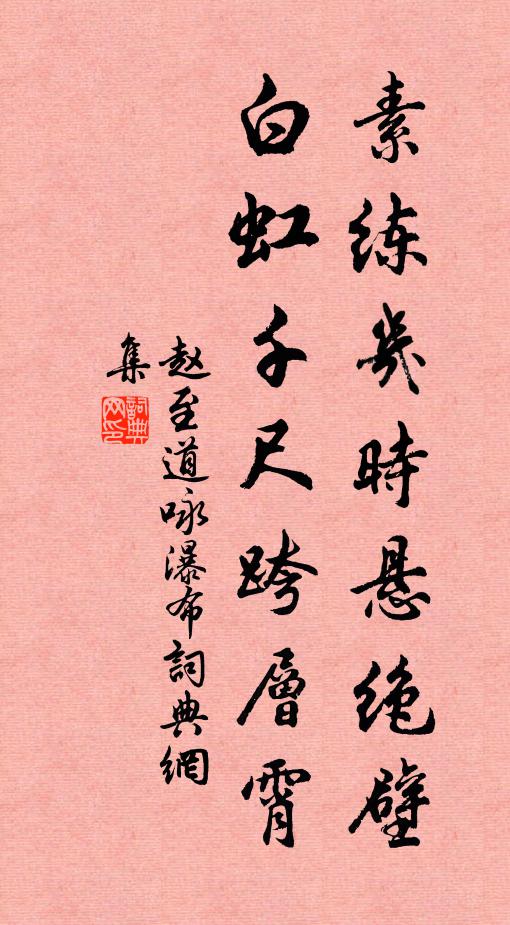 素练幾時悬绝壁
白虹千尺跨層霄
赵至道咏瀑布詞典網
集
詞典網印